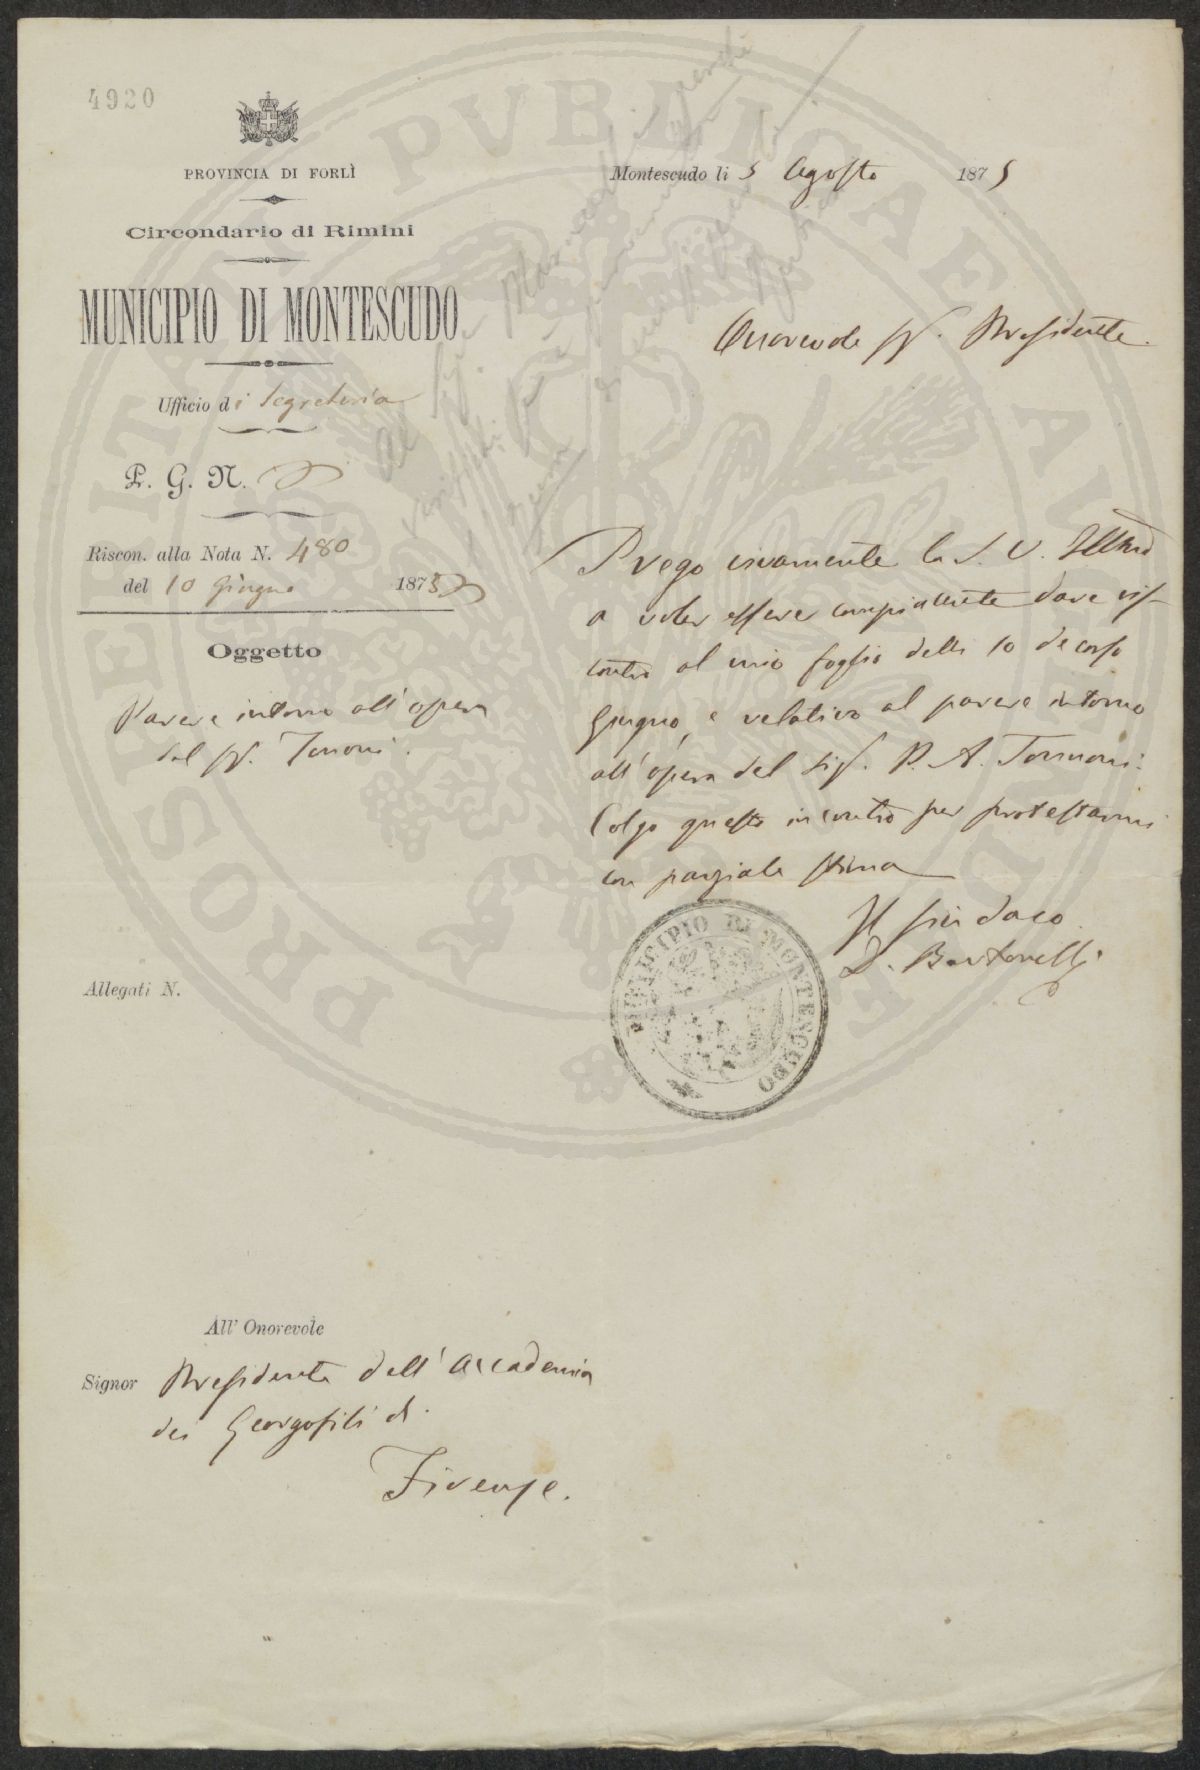 4920
PROVINCIA DI FORLÌ
Circondario di Rimini
MUNICIPIO DI MONTESCUDO
Ufficio di Segreteria
P. G. N.
Riscon. alla Nota N. 480
del 10 Giugno 1875
Oggetto
Parere intorno all'opera
del Sg. Tononi.
Allegati N.
Montescudo li 5 Agosto 1875
Onorevole Sg. Presidente.
Prego vivamente la S. V. Illma
a voler essere compiacente dare ris-
contro al mio foglio delli 10 decorso
Giugno, e relativo al parere intorno
all'opera del Sig. P. A.
Colgo questo incontro per protestarmi
con parziale stima
Il Sindaco
MUNICIPIO DI MONTESCUDO
All' Onorevole
Signor Presidente dell'Accademia
dei Georgofili di
Firenze.
PROSPERITATI PUBLICAE AUGENDAE